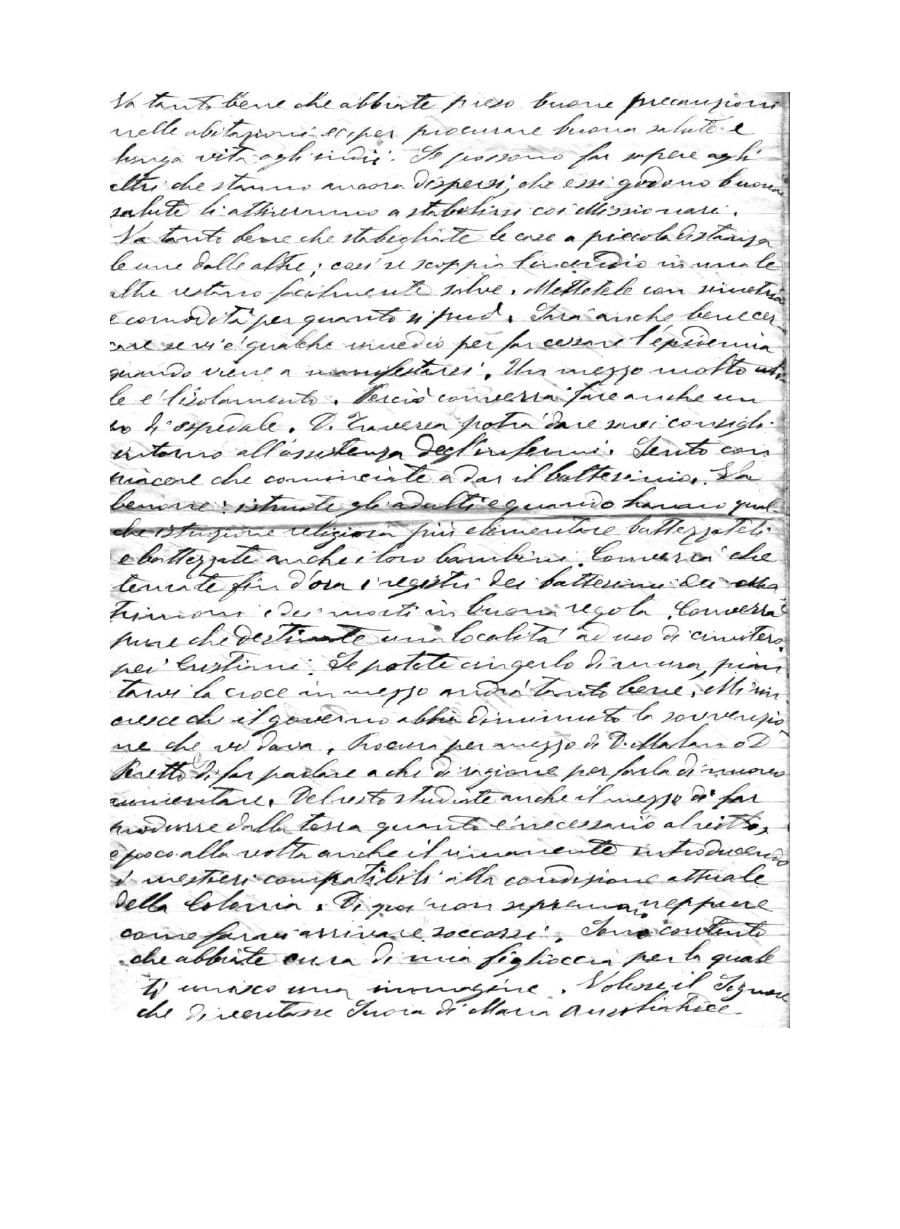 Va tanto bene che abbiate preso buone precauzioni
nelle abitazioni ecc. per procurare buona salute e
lunga vita agli indii. Se possono far sapere agli
altri che stanno ancora dispersi, che essi godono buona
salute li attireranno a stabilirsi coi Missionari.
Va tanto bene che stabigliate le case a piccola distanza
le une dalle altre; così se scoppia l'incendio in una le
altre restano facilmente salve. Mettetele con simetria
e comodità per quanto si può. Sarà anche bene cer-
care se vi è qualche rimedio per far cessare l'epidemia
quando viene a manifestarsi. Un mezzo molto uti-
le è l'isolamento. Perciò converrà fare anche un
po' di ospedale. D. Traversa potrà dare suoi consigli
intorno all'assistenza degl'infermi. Sento con
piacere che cominciate a dar il battesimo. Va
benone: istruite gli adulti e quando hanno qual-
che istruzione religiosa più elementare battezzateli
e battezzate anche i loro bambini. Converrà che
teniate fin d'ora i registri dei battesimi dei ma
trimoni e dei morti in buona regola. Converrà
pure che destiniate una località ad uso di cimitero
pei Cristiani. Se potete cingerlo di mura, pian
tarvi la croce in mezzo andrà tanto bene. Mi rin
cresce che il governo abbia diminuito la sovvenzio
ne che vi dava. Procura per mezzo di D. Malan o D.
di far parlare a chi di ragione per farla di nuovo
aumentare. Del resto studiate anche il mezzo di far
produrre dalla terra quanto è necessario al vitto,
e poco alla volta anche il rimanente introducendo
i mestieri compatibili alla condizione attuale
della Colonia. Di qui non sapremmo neppure
come farvi arrivare soccorsi. Sono contento
che abbiate cura di mia figlioccia per la quale
ti unisco una immagine. Volesse il Signore
che diventasse Suora di Maria Ausiliatrice